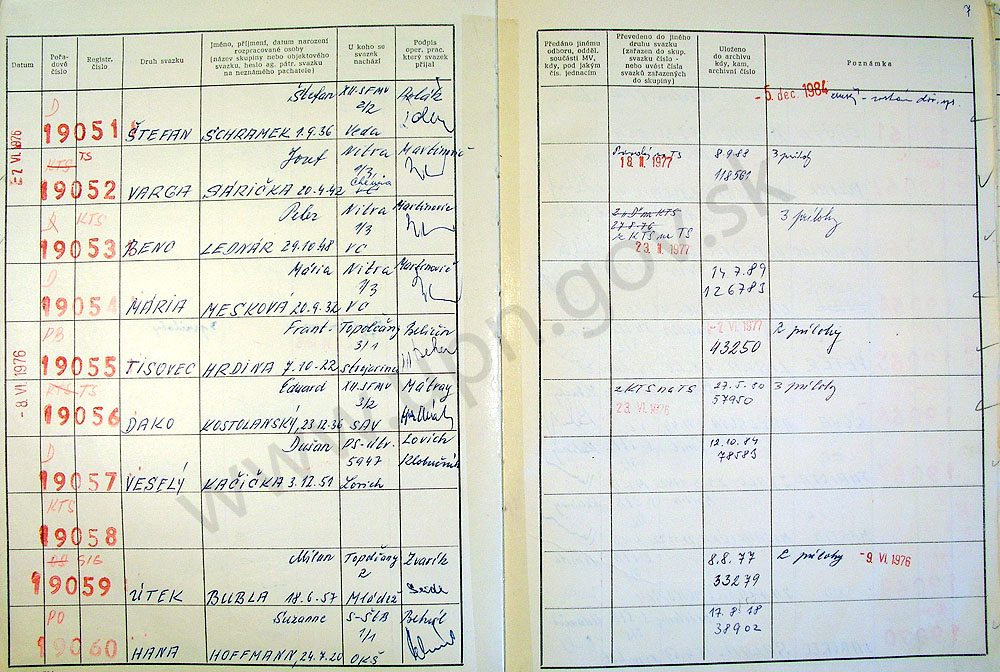 7
Datum
Pořadové číslo
Registr. číslo
Druh svazku
Jméno, příjmení, datum narození
rozpracované osoby
(název skupiny nebo objektového
svazku, heslo ag. pátr. svazku
na neznámého pachatele)
U koho se
svazek
nachází
Podpis
oper. prac.
který svazek
přijal
Předáno jinému
odboru, odděl.
součásti MV,
kdy, pod jakým
čís. jednacím
Převedeno do jiného
druhu svazku
(zařazen do skup.
svazku číslo -
nebo uvést čísla
svazků zařazených
do skupiny)
Uloženo
do archivu
kdy, kam,
archivní číslo
Poznámka
D Štefan XII.SFMV
2/2
19051 ŠTEFAN SCHRAMEK 1.9.36 Veda
- 5. dec. 1984
-2. VI. 1976
KTS TS Jozef Nitra Martinovič
1/3
Chémia
19052 VARGA SÁRIČKA 20.4.42
TS
18. II. 1977
8.9.88
118561
3 prílohy
KTS Peter Nitra Martinovič
1/3
19053 BENO LEDNÁR 29.10.48 VC
27.8.76
z KTS na TS
23. II. 1977
3 prílohy
D Mária Nitra Martinovič
1/3
19054 MÁRIA MESKOVÁ 20.9.32 VC
14.7.89
126783
PB Frant. Topoľčany
3/1
19055 TISOVEC HRDINA 7.10.22
-2. VI. 1977
43250
2 prílohy
-8. VI. 1976
KTS TS Eduard XII.SFMV Mátray
3/2
19056 DAKO KOSTOLANSKÝ, 23.12.36 SAV
z KTS na TS
23. VI. 1976
27.5.80
57950
3 prílohy
D Dušan PS-útv. Lovich
5947
19057 VESELÝ KAČIČKA 3.12.51 Lovich
12.10.84
78583
KTS
19058
SIG Milan Topoľčany Zvarík
2
19059 ÚTEK BUBLA 18.6.57 Mládež
8.8.77
33279
2 prílohy -9. VI. 1976
PO Suzanne S-ŠtB
1/1
19060 HANA HOFFMANN, 24.7.20 OKŠ
38902
www.upn.gov.sk